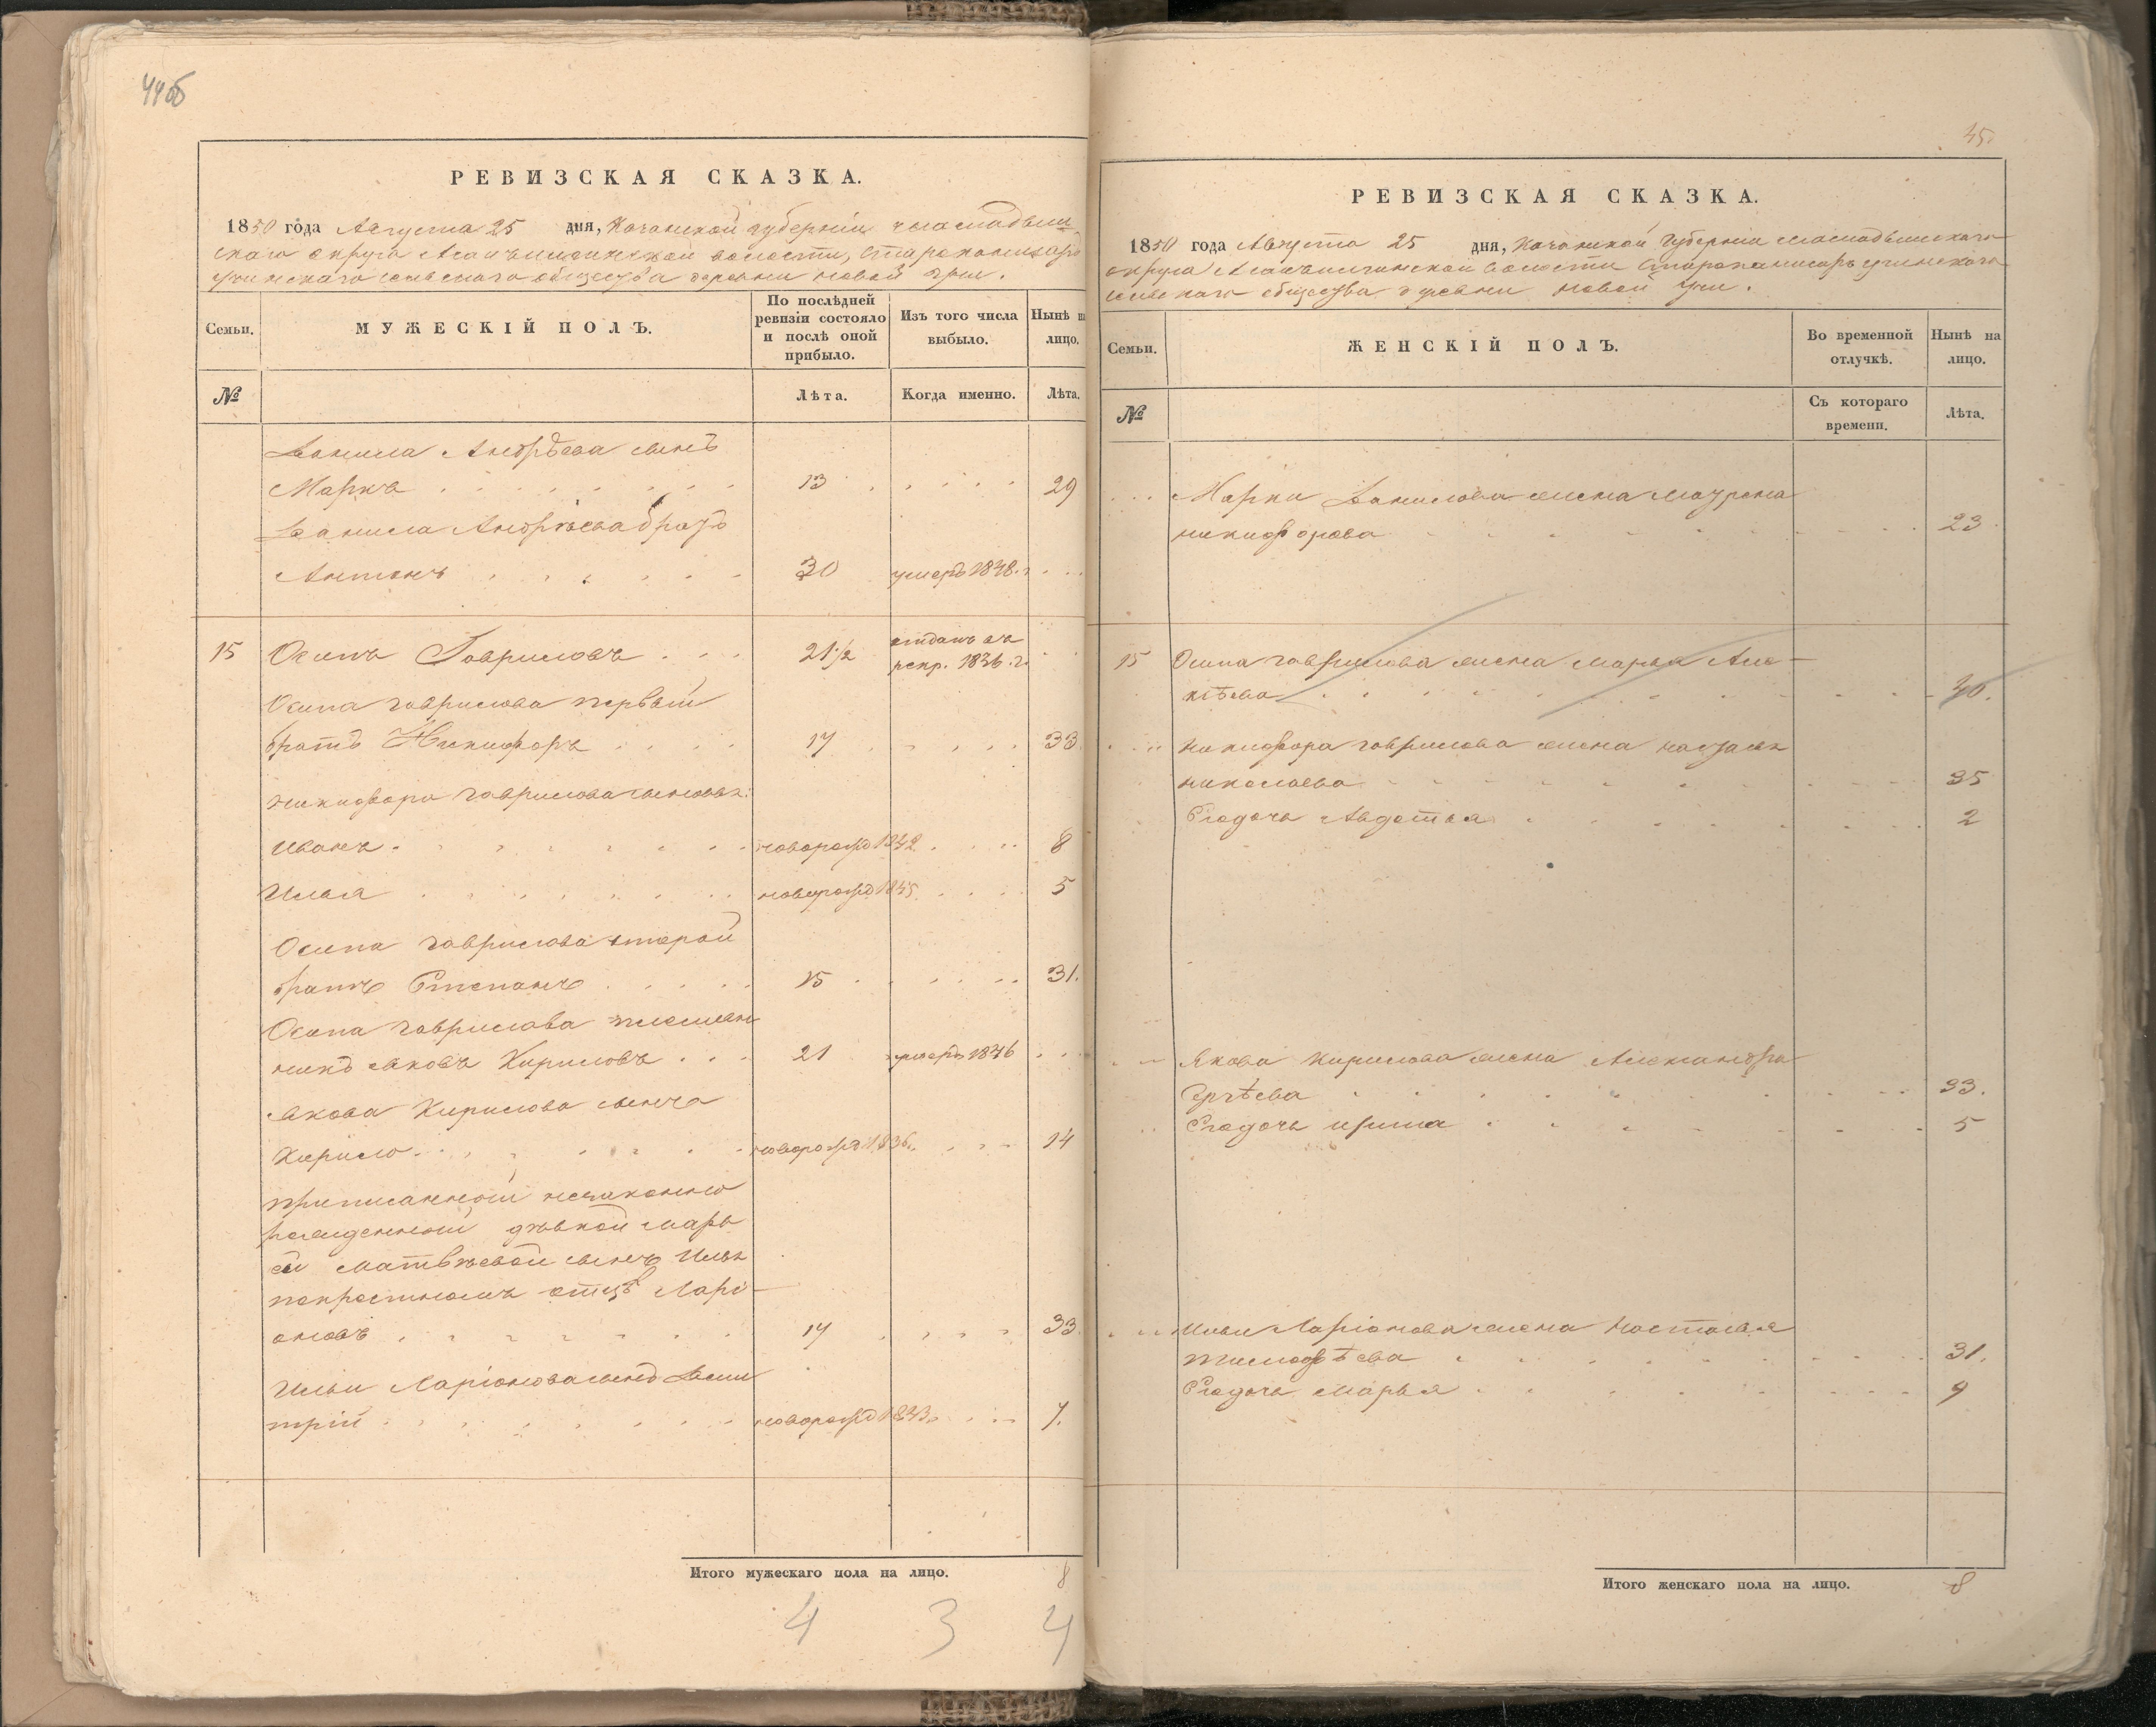 44об
РЕВИЗСКАЯ СКАЗКА.
1850 года Августа 25 дня, Казанской губерніи
скаго округа волости,
сельскаго общества деревни Новой Учи.
Семьи.
МУЖЕСКІЙ ПОЛЪ.
По послѣдней
ревизіи состояло
и послѣ оной
прибыло.
Изъ того числа
выбыло.
Нынѣ
лицо.
№
Лѣта.
Когда именно.
Лѣта.
Данила Андрѣева сынъ
Маркъ 13 29
Данила Андрѣева братъ
Антонъ 30 умеръ 1848.г
15 Осипъ Гавриловъ 21½ отданъ въ
рекр. 1836.г.
Осипа Гаврилова первый
братъ Никифоръ 17 33
Никифора Гаврилова сыновья:
Иванъ новорожд 1842 8
Илья новорожд 1845 5
Осипа Гаврилова второй
братъ Степанъ 15 31.
Осипа Гаврилова племян
никъ Яковъ Кириловъ 21 умеръ 1846
Якова Кирилова сынъ
Кирило новорожд 1836 14
приписанной незаконно
рожденной дѣвкой Марь
ей Матвѣевой сынъ Илья
покрестномъ отцѣ Ларі
оновъ 17 33
Ильи Ларіонова сынъ Дми
трій новорожд 1843. 7.
Итого мужескаго пола на лицо. 8
4 3 4
45.
РЕВИЗСКАЯ СКАЗКА.
1850 года Августа 25 дня, Казанской Губерніи
округа волости
сельскаго общества деревни Новой Учи.
Семьи.
ЖЕНСКІЙ ПОЛЪ.
Во временной
отлучкѣ.
Нынѣ на
лицо.
№
Съ котораго
времени.
Лѣта.
Марка Данилова жена Маурена
Никифорова 23
15 Осипа Гаврилова жена Марья Але-
ксѣева 40.
Никифора Гаврилова жена Наталья
Николаева 35
Егодочь Авдотья 2
Якова Кирилова жена Александра
Ергѣева 33.
Егодочь Ирина 5
Ильи Ларіонова жена Настасья
Тимофѣева 31.
Егодочь Марья 9
Итого женскаго пола на лицо. 8